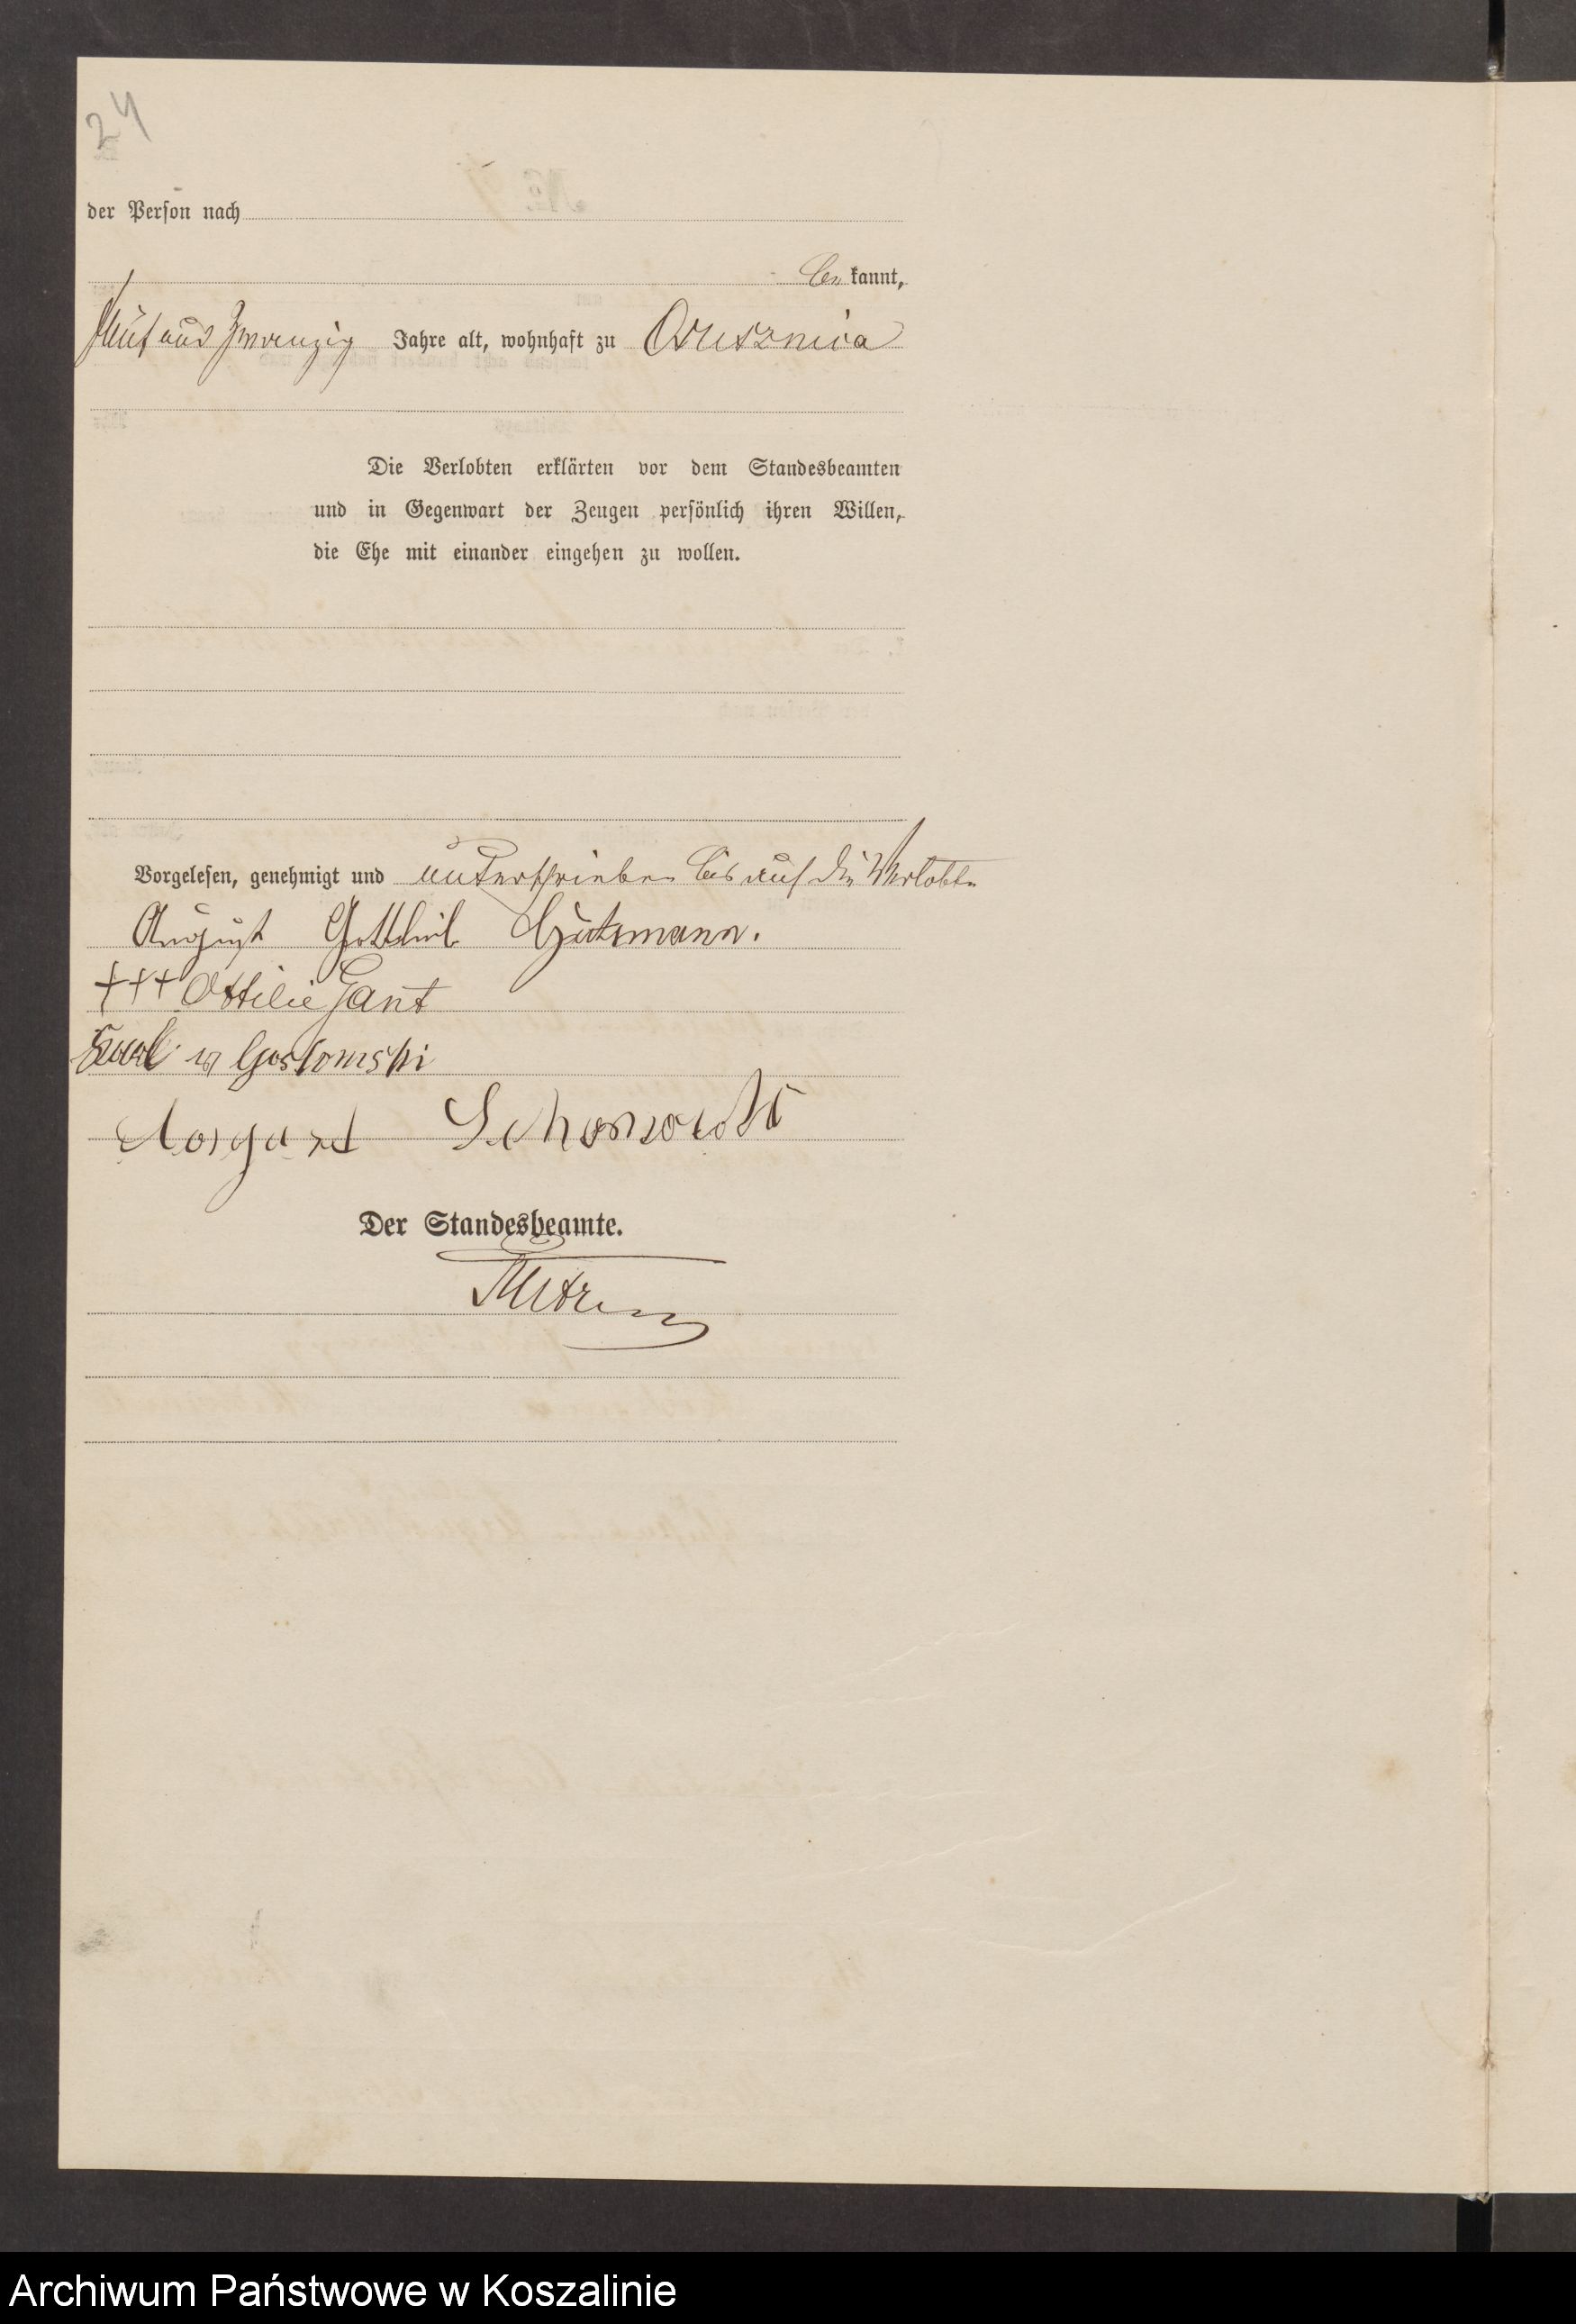 24
der Person nach
be kannt,
fünf und zwanzig Jahre alt, wohnhaft zu Ossusznica
Die Verlobten erklärten vor dem Standesbeamten
und in Gegenwart der Zeugen persönlich ihren Willen,
die Ehe mit einander eingehen zu wollen.
Vorgelesen, genehmigt und unterschrieben bis auf die Verlobte
August Gottlieb Gutzmann.
+++ Ottilie Jant
v Gostomski
Der Standesbeamte.
Archiwum Państwowe w Koszalinie